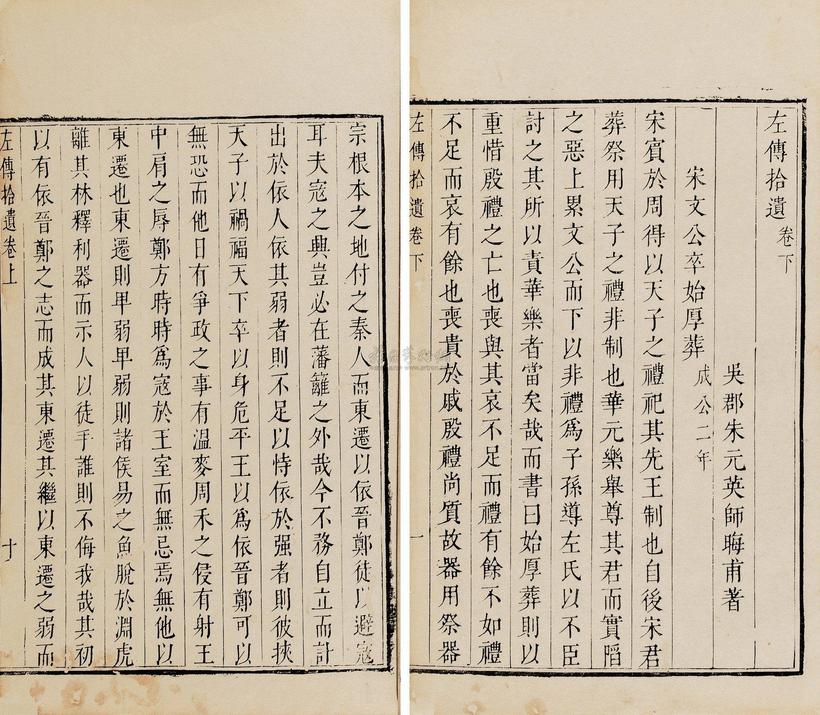 左傳拾遺卷下
吳郡朱元英師晦甫著
宋文公卒始厚葬成公二年
宋賓於周得以天子之禮祀其先王制也自後宋君
葬祭用天子之禮非制也華元樂舉尊其君而實陷
之惡上累文公而下以非禮爲子孫導左氏以不臣
討之其所以責華樂者當矣哉而書曰始厚葬則以
重惜殷禮之亡也喪與其哀不足而禮有餘不如禮
不足而哀有餘也喪貴於戚殷禮尚質故器用祭器
左傳拾遺卷下
一
宗根本之地付之秦人而東遷以依晉鄭徒以避寇
耳夫寇之興豈必在藩籬之外哉今不務自立而計
出於依人依其弱者則不足以恃依於强者則彼挾
天子以禍福天下卒以身危平王以爲依晉鄭可以
無恐而他日有爭政之事有溫麥周禾之侵有射王
中肩之辱鄭方時時爲寇於王室而無忌焉無他以
東遷也東遷則甲弱甲弱則諸侯易之魚脫於淵虎
離其林釋利器而示人以徒手誰則不侮我哉其初
以有依晉鄭之志而成其東遷其繼以東遷之弱而
左傳拾遺卷上
十